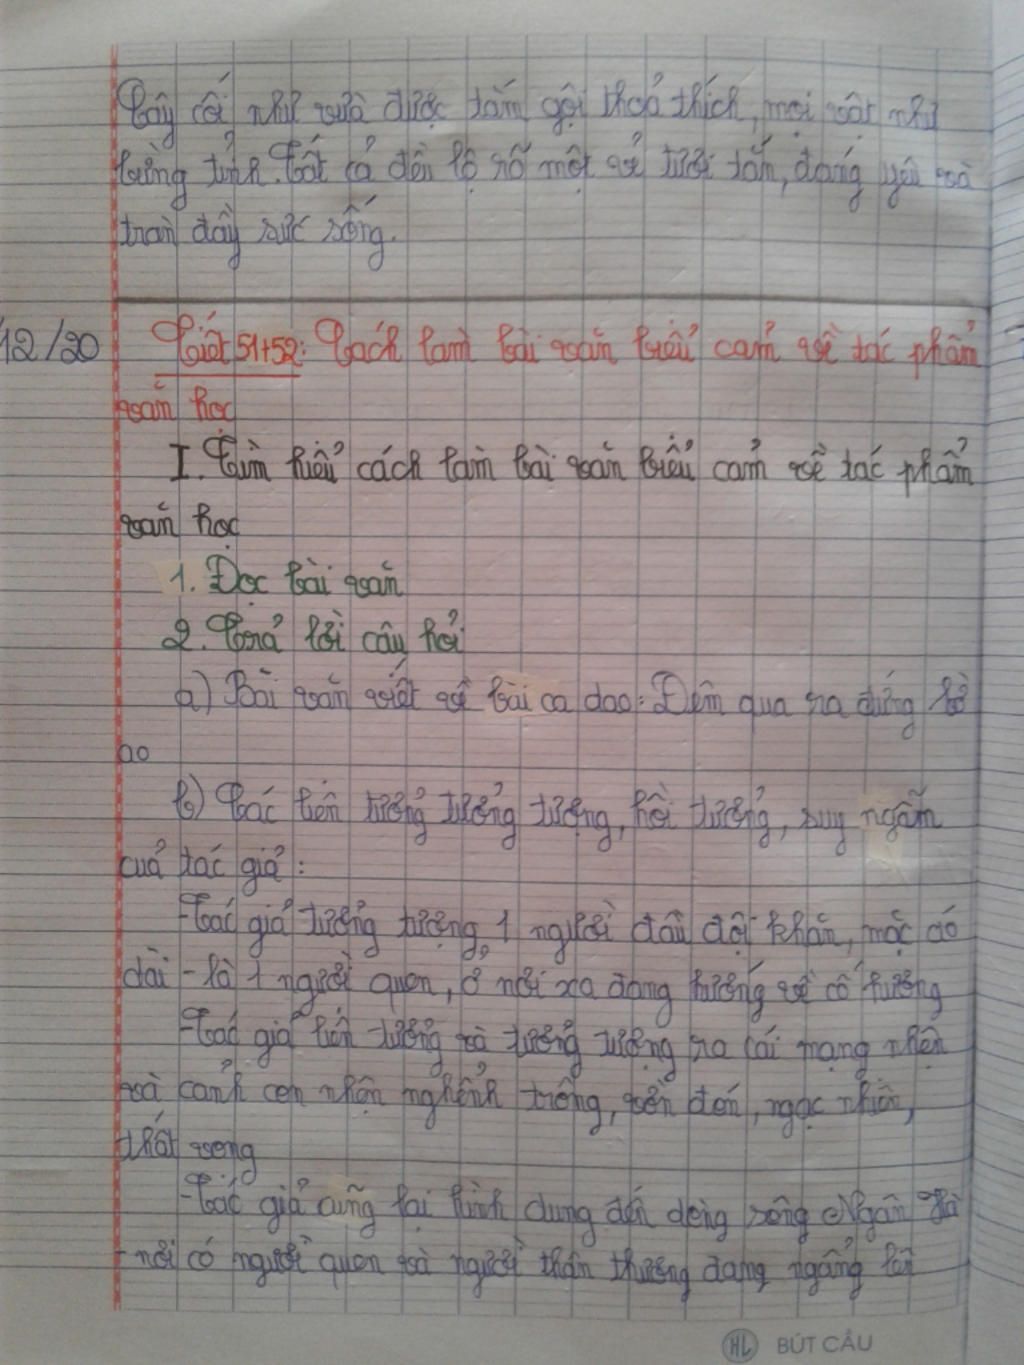 Cây cối như vừa được tắm gội thoả thích, mọi vật như
bừng tỉnh. Tất cả đều lộ rõ một vẻ tươi tắn, đáng yêu và
tràn đầy sức sống.
12/20 Tiết 51+52: Cách làm bài văn biểu cảm về tác phẩm
văn học
I. Tìm hiểu cách làm bài văn biểu cảm về tác phẩm
văn học
1. Đọc bài văn
2. Trả lời câu hỏi
a) Bài văn viết về bài ca dao: Đêm qua ra đứng bờ
ao
b) Các liên tưởng tưởng tượng, hồi tưởng, suy ngẫm
của tác giả:
-Tác giả tưởng tượng 1 người đàn đội khăn, mặc áo
dài - là 1 người quen, ở nơi xa đang hướng về cố hương
-Tác giả liên tưởng và tưởng tượng ra cái mạng nhện
và cảnh con nhện nghểnh trông, quẩn đón, ngạc nhiên,
thất vọng
-Tác giả cũng lại hình dung đến dòng sông Ngân Hà
- nơi có người quen và người thân thương đang ngẩng lên
HL BÚT CẦU